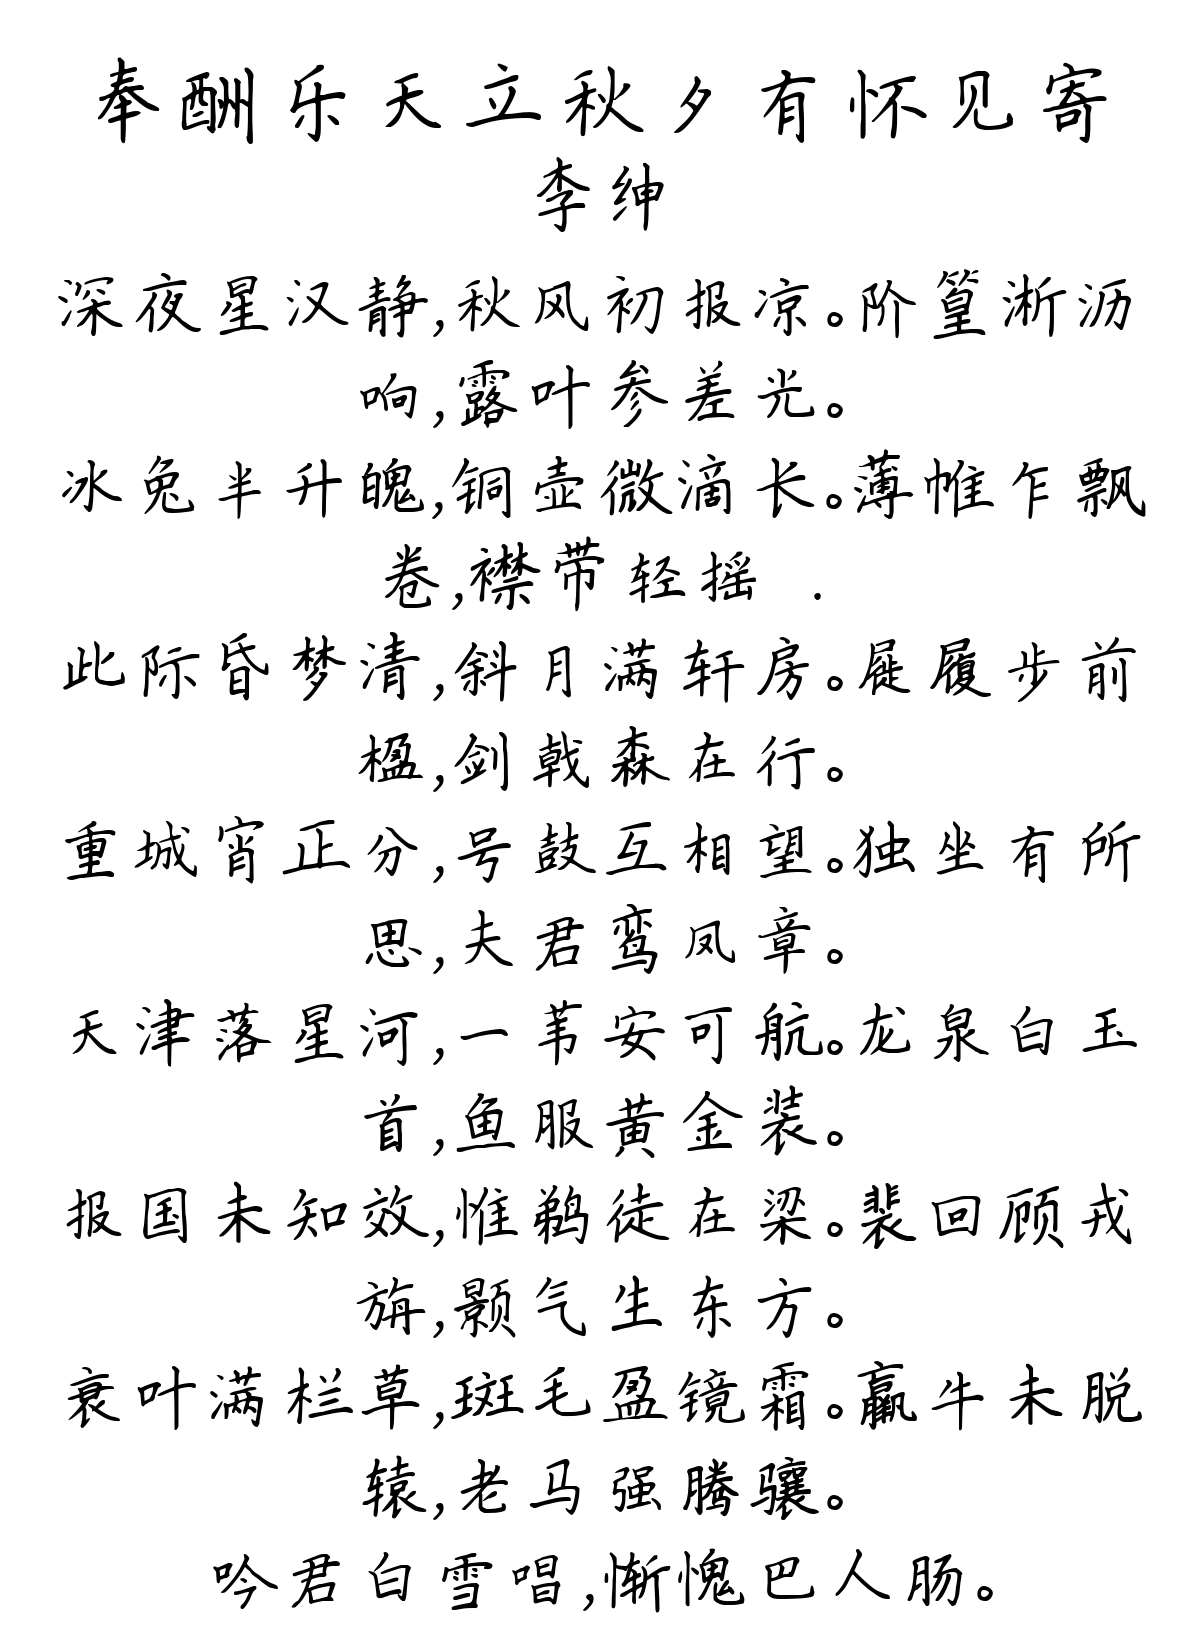 奉酬乐天立秋夕有怀见寄
李绅
深夜星汉静,秋风初报凉。阶篁淅沥
响,露叶参差光。
冰兔半升魄,铜壶微滴长。薄帷乍飘
卷,襟带轻摇 .
此际昏梦清,斜月满轩房。屣履步前
楹,剑戟森在行。
重城宵正分,号鼓互相望。独坐有所
思,夫君鸾凤章。
天津落星河,一苇安可航。龙泉白玉
首,鱼服黄金装。
报国未知效,惟鹈徒在梁。裴回顾戎
旃,颢气生东方。
衰叶满栏草,斑毛盈镜霜。羸牛未脱
辕,老马强腾骧。
吟君白雪唱,惭愧巴人肠。